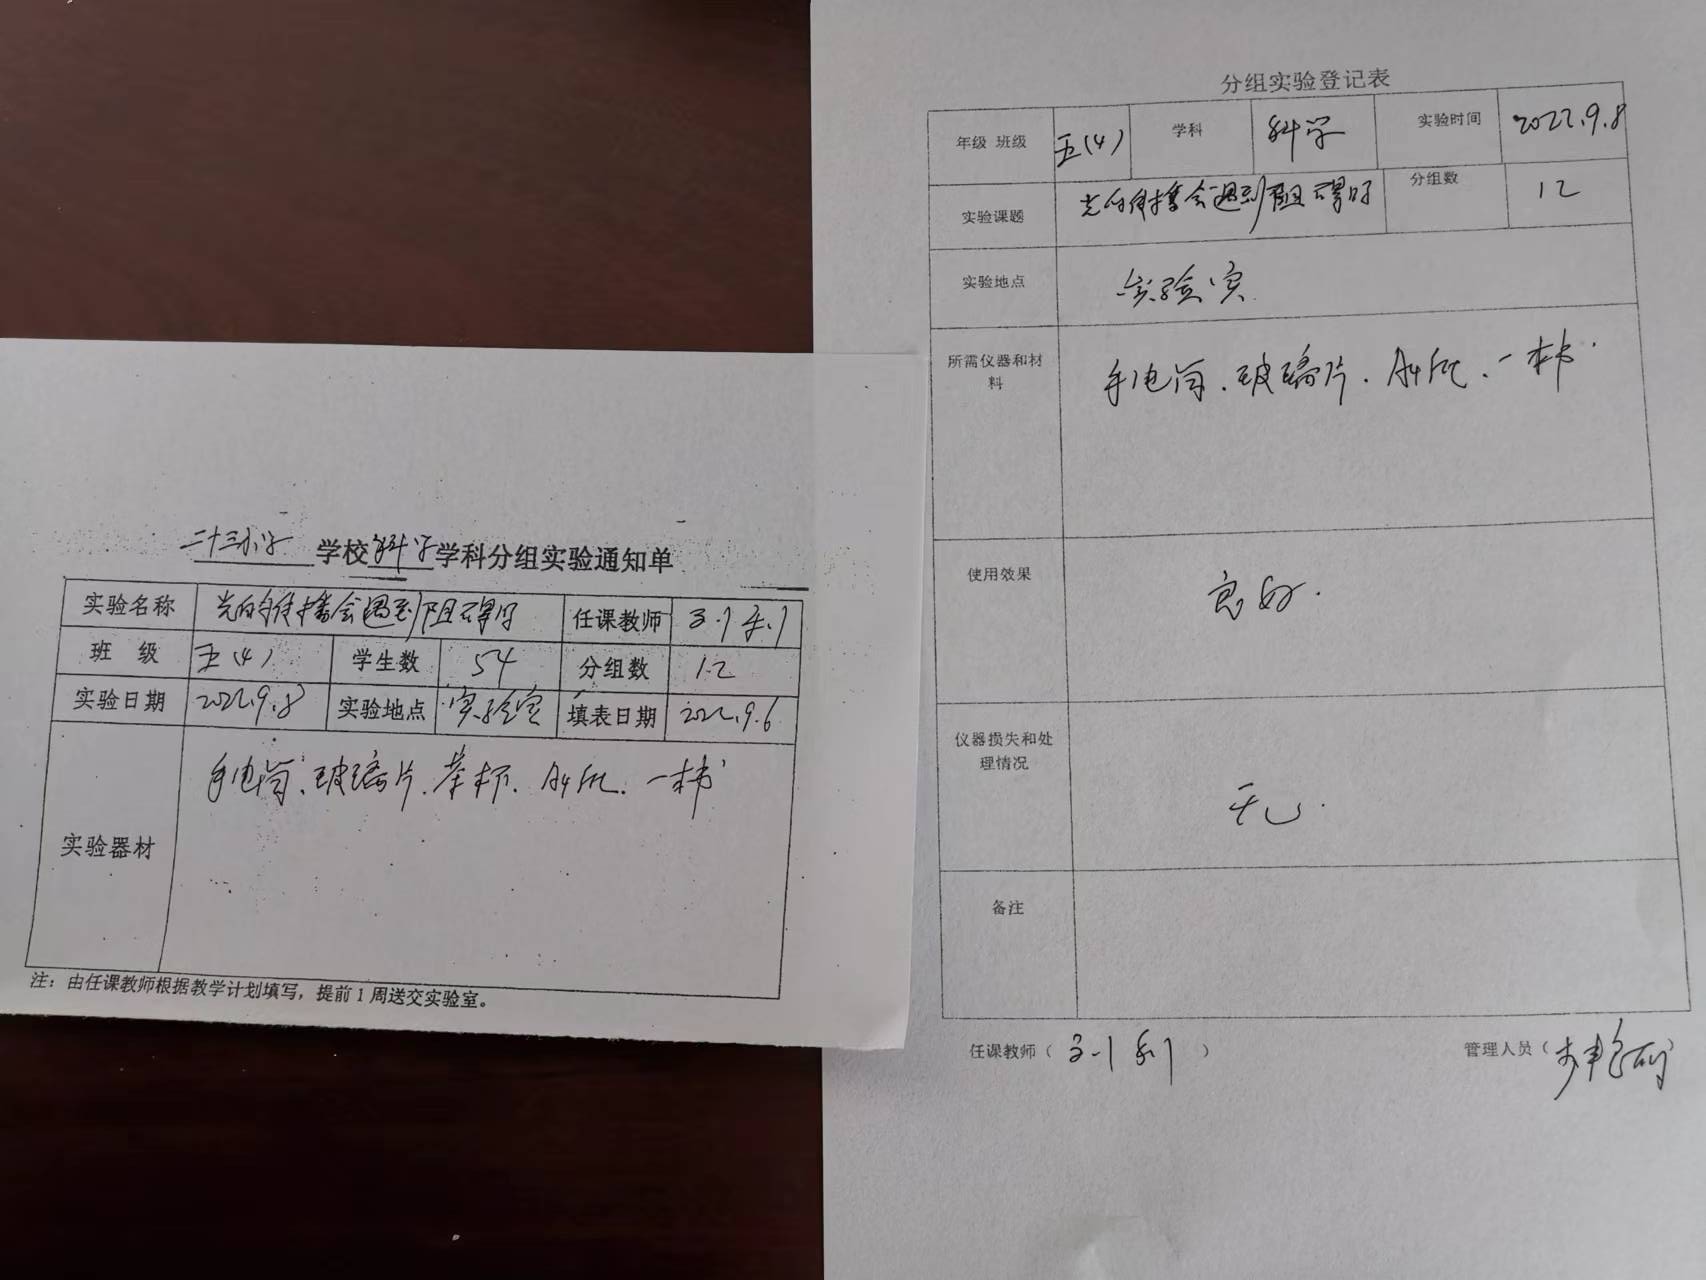 二十三小学 学校 科学 学科分组实验通知单
实验名称 光的传播会遇到阻碍时 任课教师
班 级 五(4) 学生数 54 分组数 12
实验日期 2022.9.8 实验地点 实验室 填表日期 2022.9.6
实验器材 手电筒、玻璃片、茶杯、A4纸、一本书
注：由任课教师根据教学计划填写，提前1周送交实验室。
分组实验登记表
年级 班级 五(4) 学科 科学 实验时间 2022.9.8
实验课题 光的传播会遇到阻碍时 分组数 12
实验地点 实验室
所需仪器和材
料 手电筒、玻璃片、A4纸、一本书
使用效果 良好.
仪器损失和处
理情况 无.
备注
任课教师（ ） 管理人员（